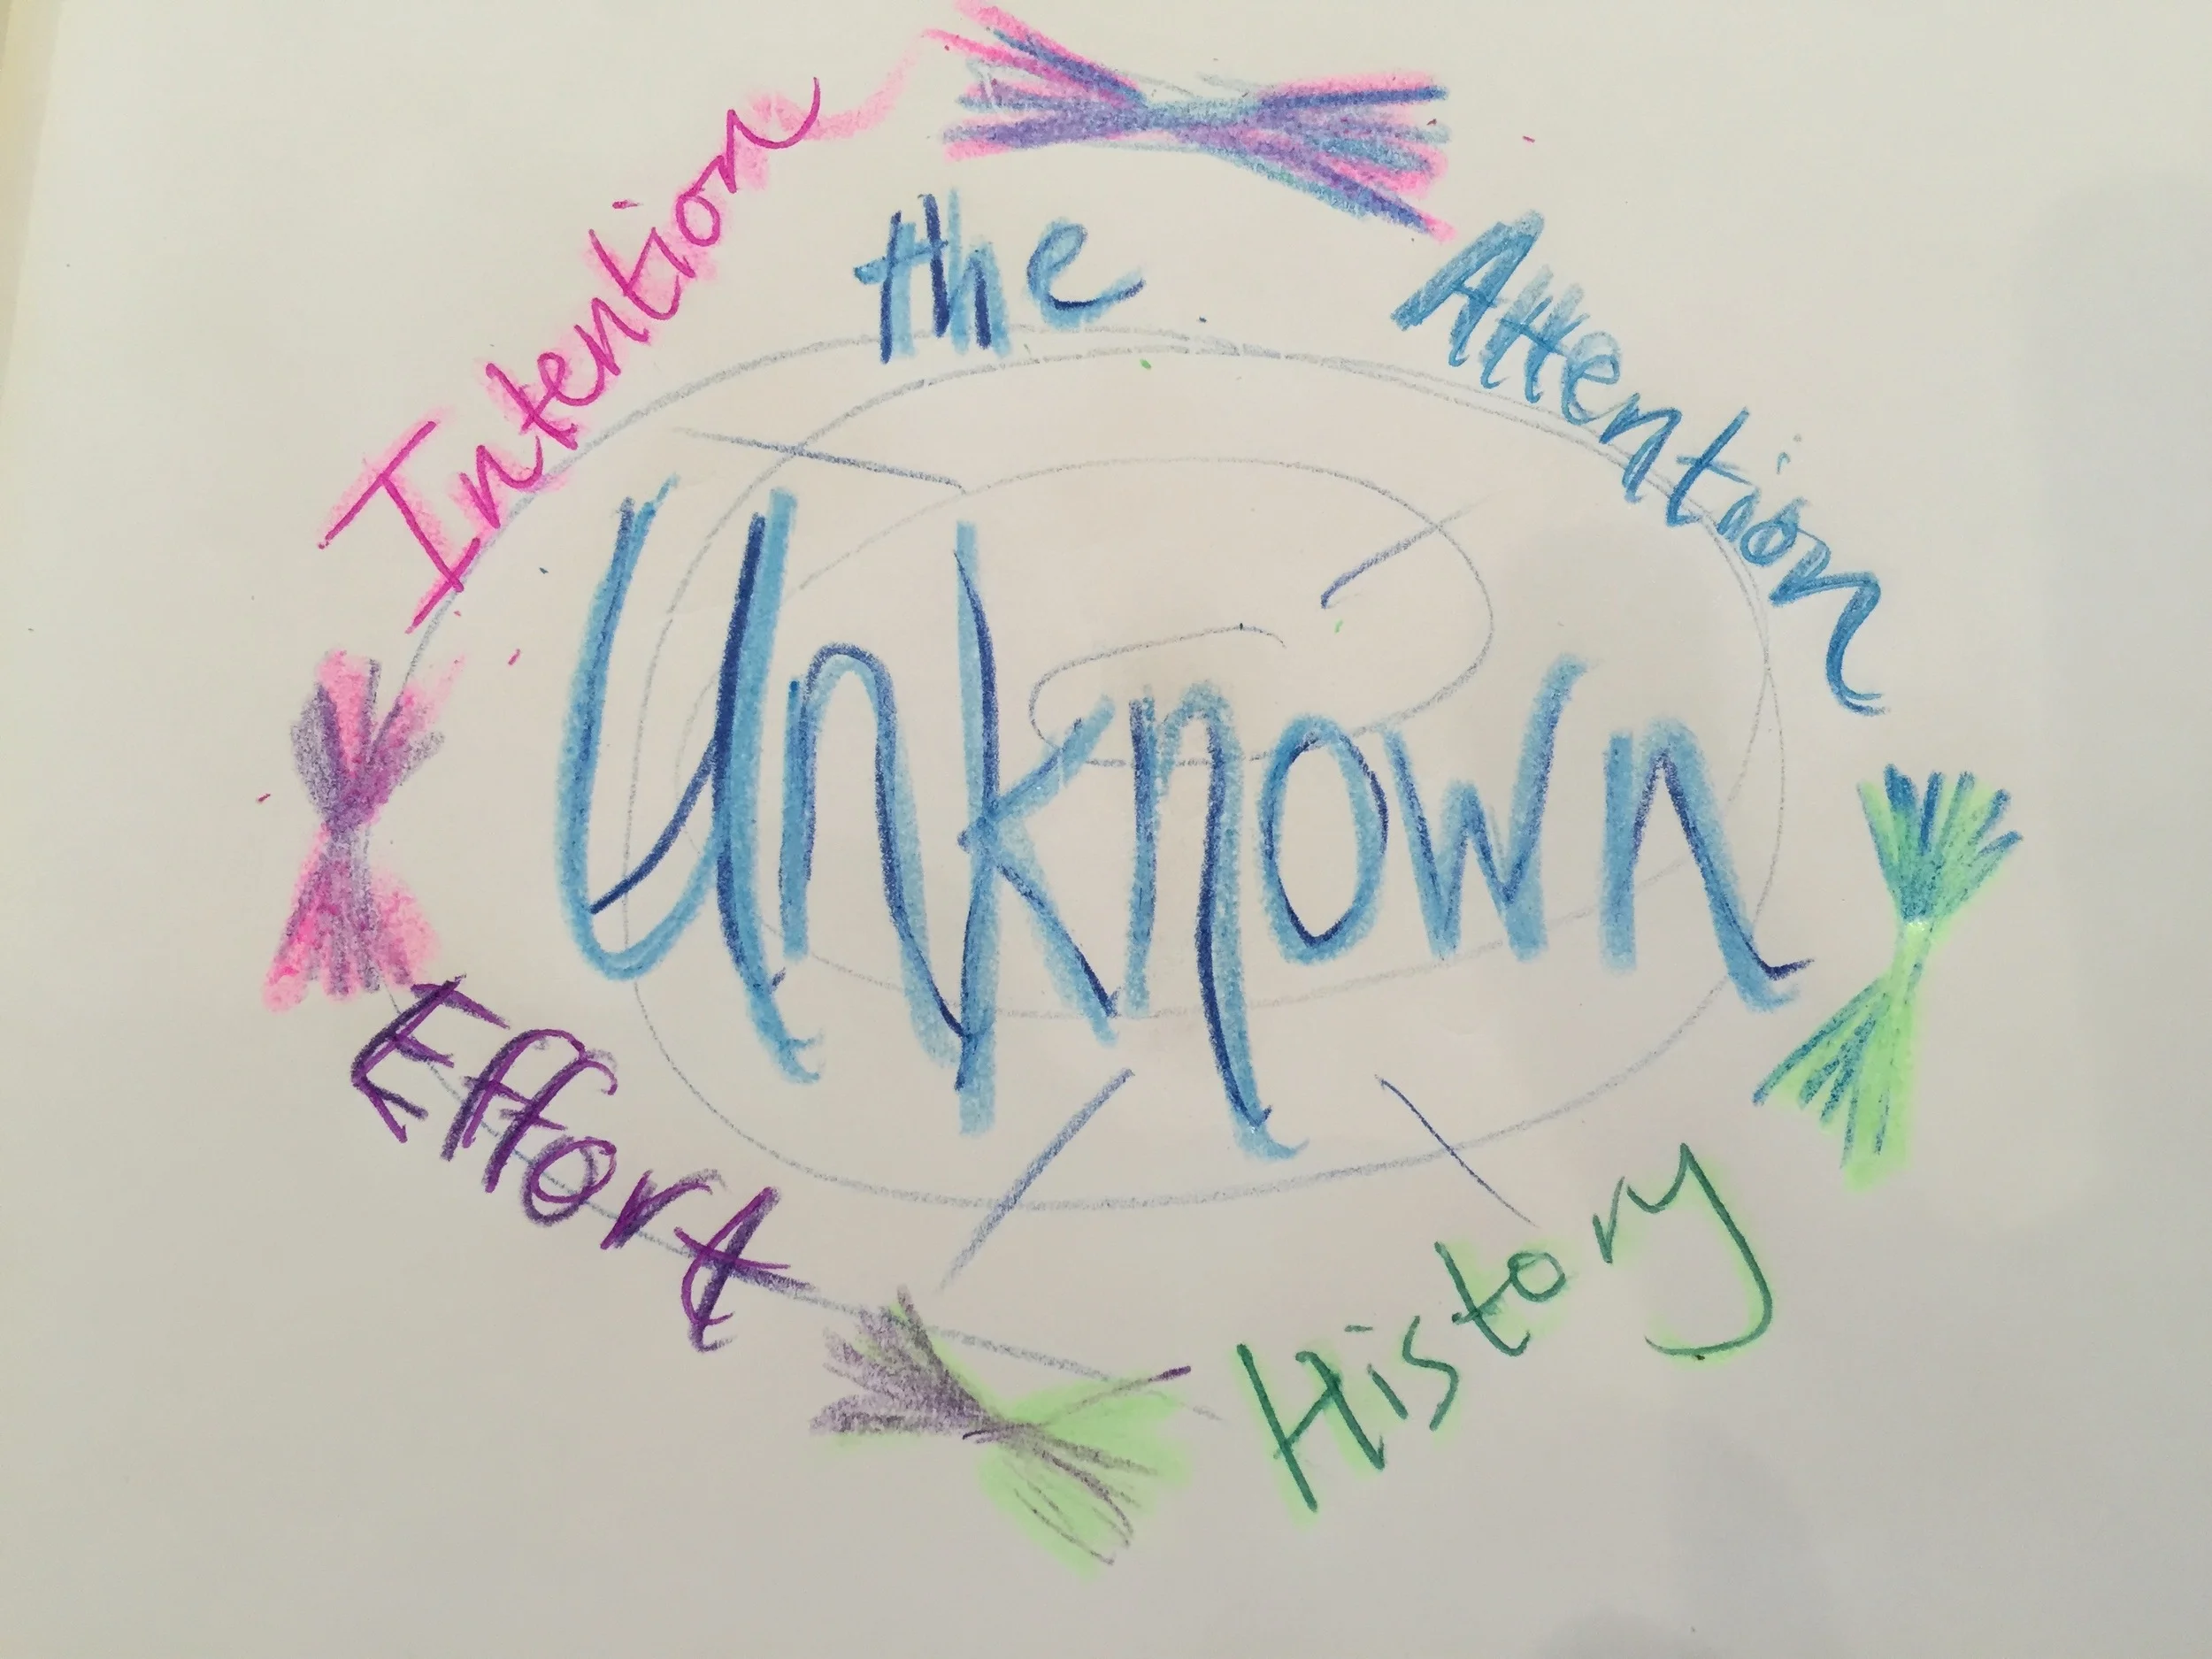 Intention
the
Attention
Unknown
Effort
History